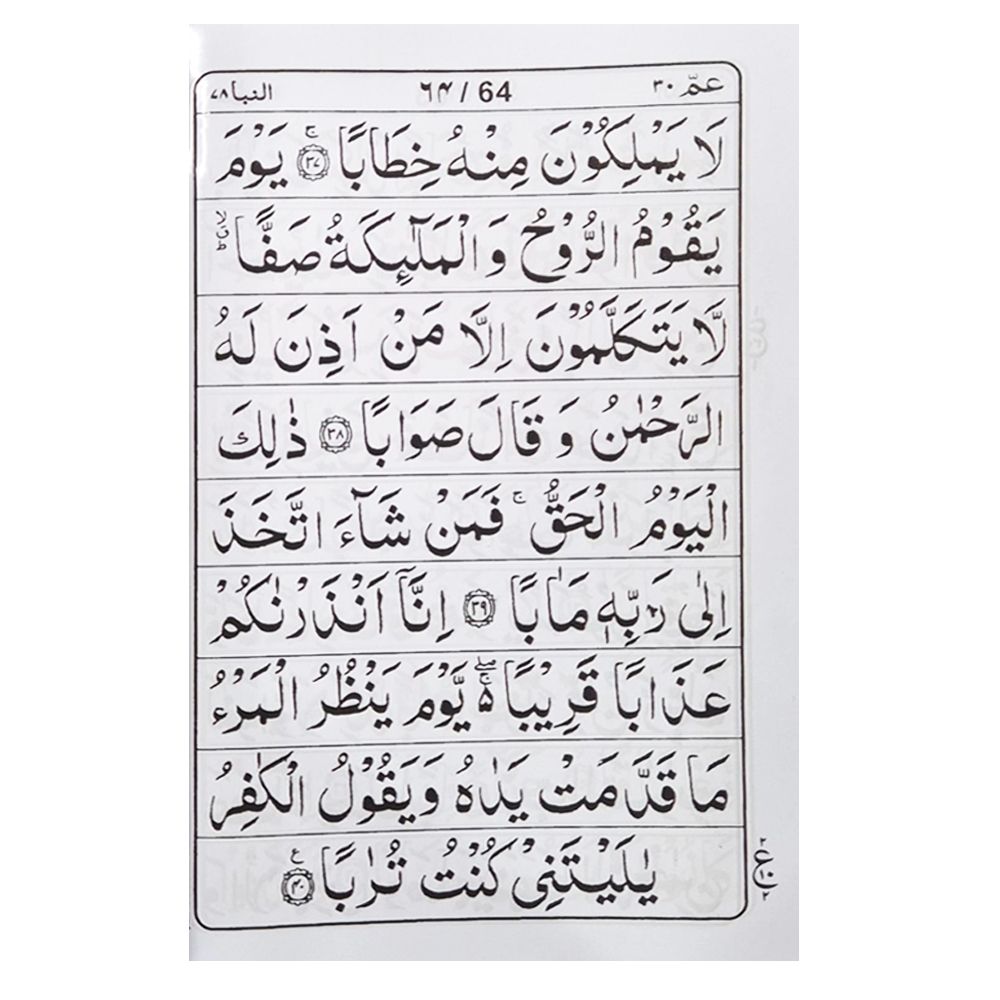 عمّ ٣٠ ٦٤ / 64 النبا ٧٨
لَا يَمْلِكُوْنَ مِنْهُ خِطَابًا ۚ ﴿٣٧﴾ يَوْمَ
يَقُوْمُ الرُّوْحُ وَ الْمَلٰٓئِكَةُ صَفًّا ۙؕ
لَّا يَتَكَلَّمُوْنَ اِلَّا مَنْ اَذِنَ لَهُ
الرَّحْمٰنُ وَ قَالَ صَوَابًا ﴿٣٨﴾ ذٰلِكَ
الْيَوْمُ الْحَقُّ ۚ فَمَنْ شَآءَ اتَّخَذَ
اِلٰى رَبِّهٖ مَاٰبًا ﴿٣٩﴾ اِنَّاۤ اَنْذَرْنٰكُمْ
عَذَابًا قَرِيْبًا ۖۚ۬۵ يَّوْمَ يَنْظُرُ الْمَرْءُ
مَا قَدَّمَتْ يَدٰهُ وَ يَقُوْلُ الْكٰفِرُ
يٰلَيْتَنِيْ كُنْتُ تُرٰبًا ﴿٤٠﴾ ع
٢ ع ١٠ ٢